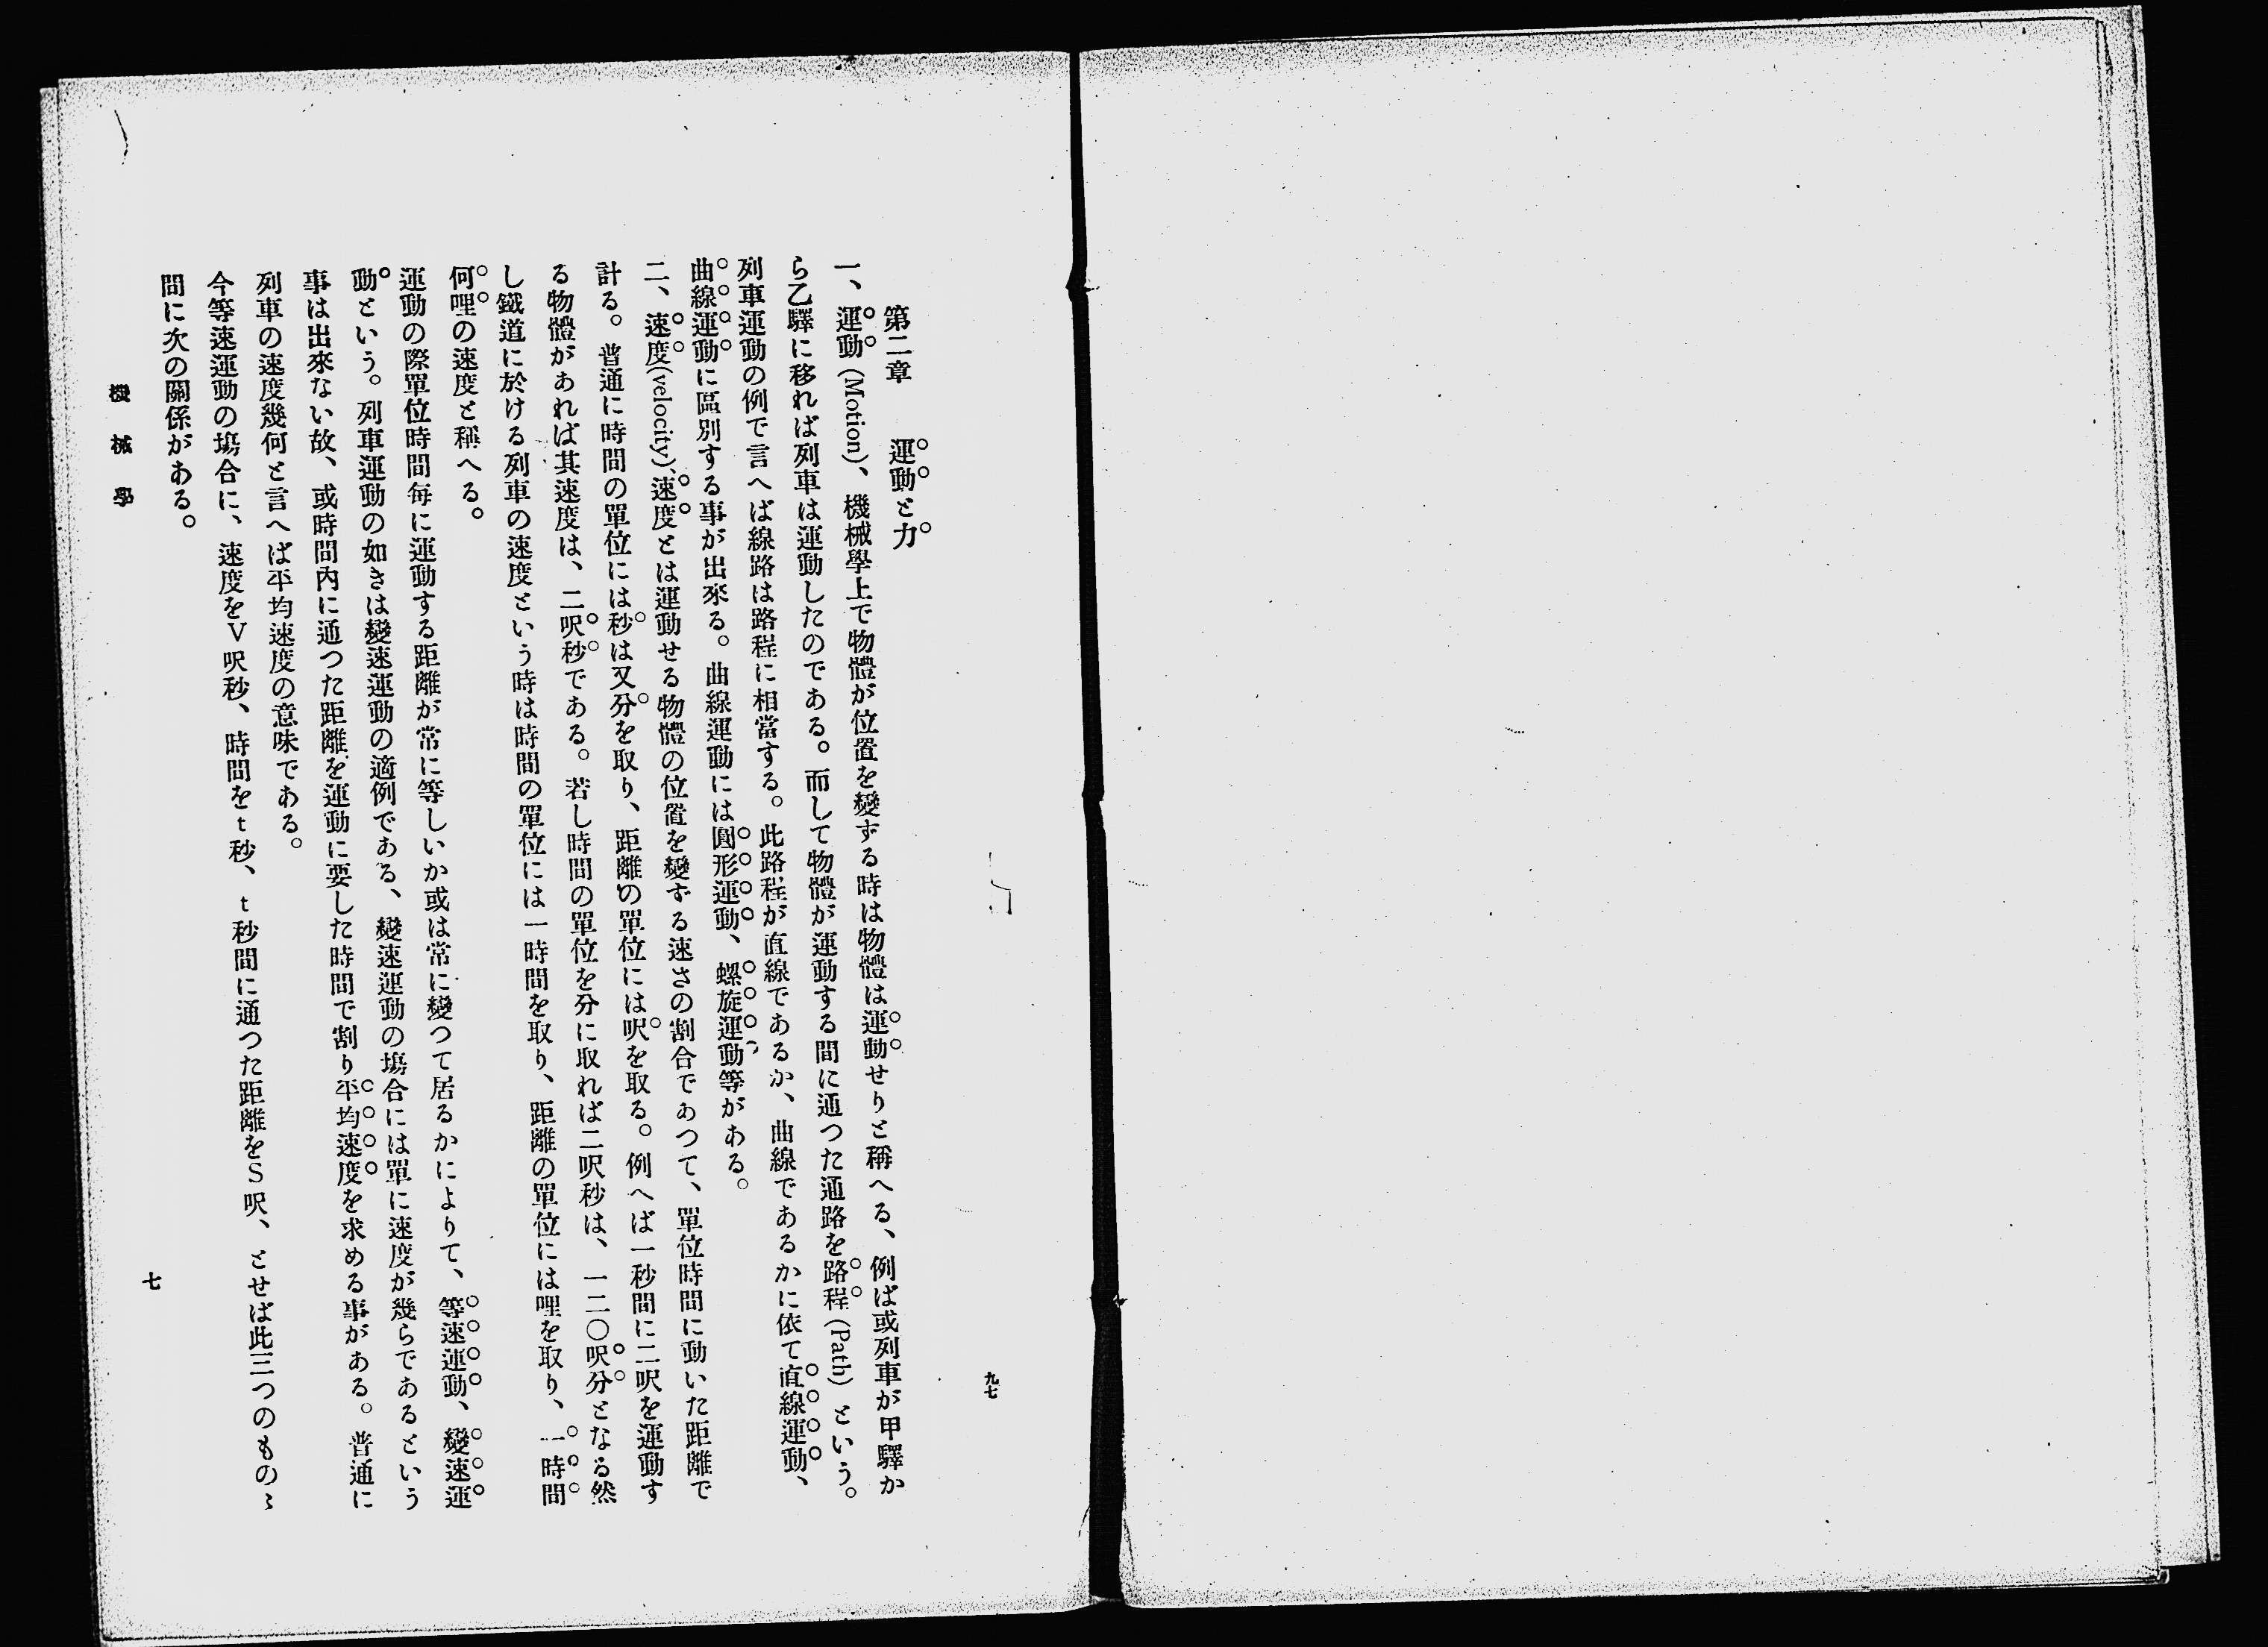 九七
第二章　運動と力
一、運動(Motion)、機械學上で物體が位置を變ずる時は物體は運動せりと稱へる、例ば或列車が甲驛か
ら乙驛に移れば列車は運動したのである。而して物體が運動する間に通つた通路を路程(Path)という。
列車運動の例で言へば線路は路程に相當する。此路程が直線であるか、曲線であるかに依て直線運動、
曲線運動に區別する事が出來る。曲線運動には圓形運動、螺旋運動等がある。
二、速度(velocity)、速度とは運動せる物體の位置を變ずる速さの割合であつて、單位時間に動いた距離で
計る。普通に時間の單位には秒は又分を取り、距離の單位には呎を取る。例へば一秒間に二呎を運動す
る物體があれば其速度は、二呎秒である。若し時間の單位を分に取れば二呎秒は、一二〇呎分となる然
し鐵道に於ける列車の速度という時は時間の單位には一時間を取り、距離の單位には哩を取り、一時間
何哩の速度と稱へる。
運動の際單位時間每に運動する距離が常に等しいか或は常に變つて居るかによりて、等速運動、變速運
動という。列車運動の如きは變速運動の適例である、變速運動の塲合には單に速度が幾らであるという
事は出來ない故、或時間內に通つた距離を運動に要した時間で割り平均速度を求める事がある。普通に
列車の速度幾何と言へば平均速度の意味である。
今等速運動の塲合に、速度をV呎秒、時間をt秒、t秒間に通つた距離をS呎、とせば此三つのものゝ
間に次の關係がある。
機械學
七